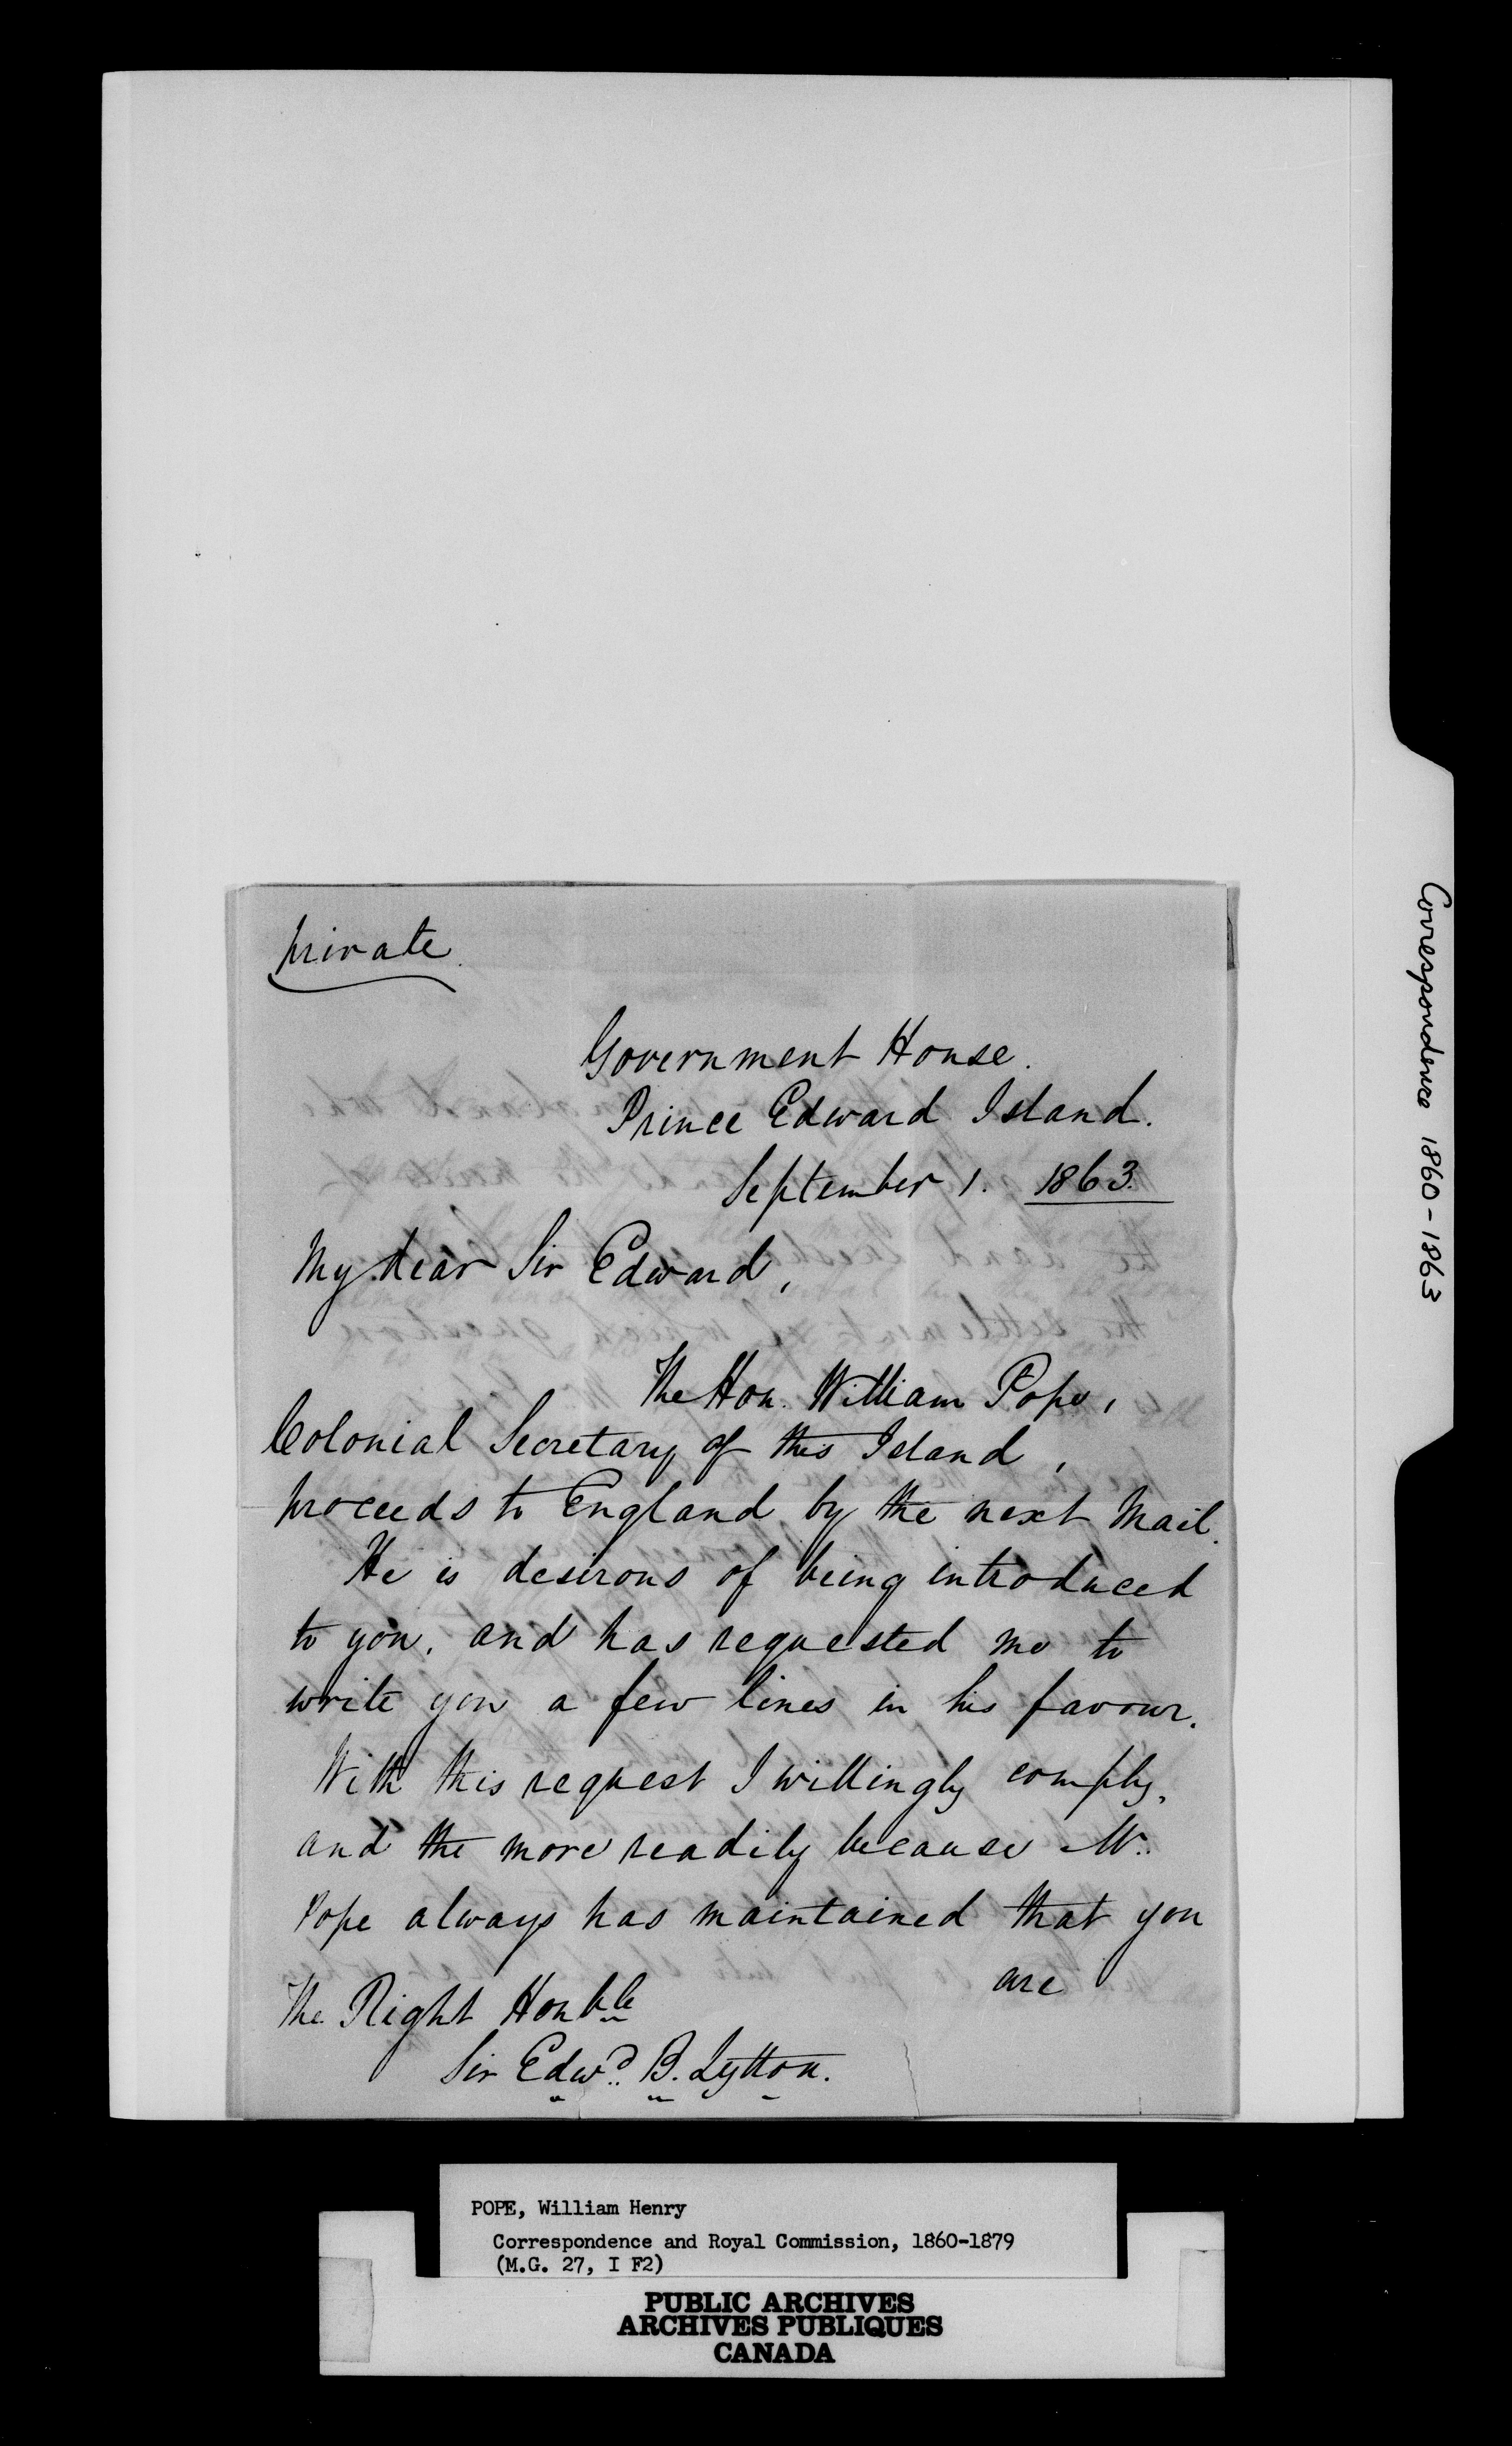 private.
Government House.
Prince Edward Island.
September 1. 1863.
My dear Sir Edward,
The Hon. William Pope,
Colonial Secretary of this Island,
proceeds to England by the next Mail.
He is desirous of being introduced
to you, and has requested me to
write you a few lines in his favour.
With this request I willingly comply,
and the more readily because Mr.
Pope always has maintained that you
are
The Right Honble
Sir Edwd. B. Lytton.
Correspondence 1860-1863
POPE, William Henry
Correspondence and Royal Commission, 1860-1879
(M.G. 27, I F2)
PUBLIC ARCHIVES
ARCHIVES PUBLIQUES
CANADA